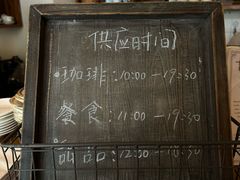 供应时间
·咖啡:10:00—19:30
餐食:11:00—19:30
甜品:12:00—18:30